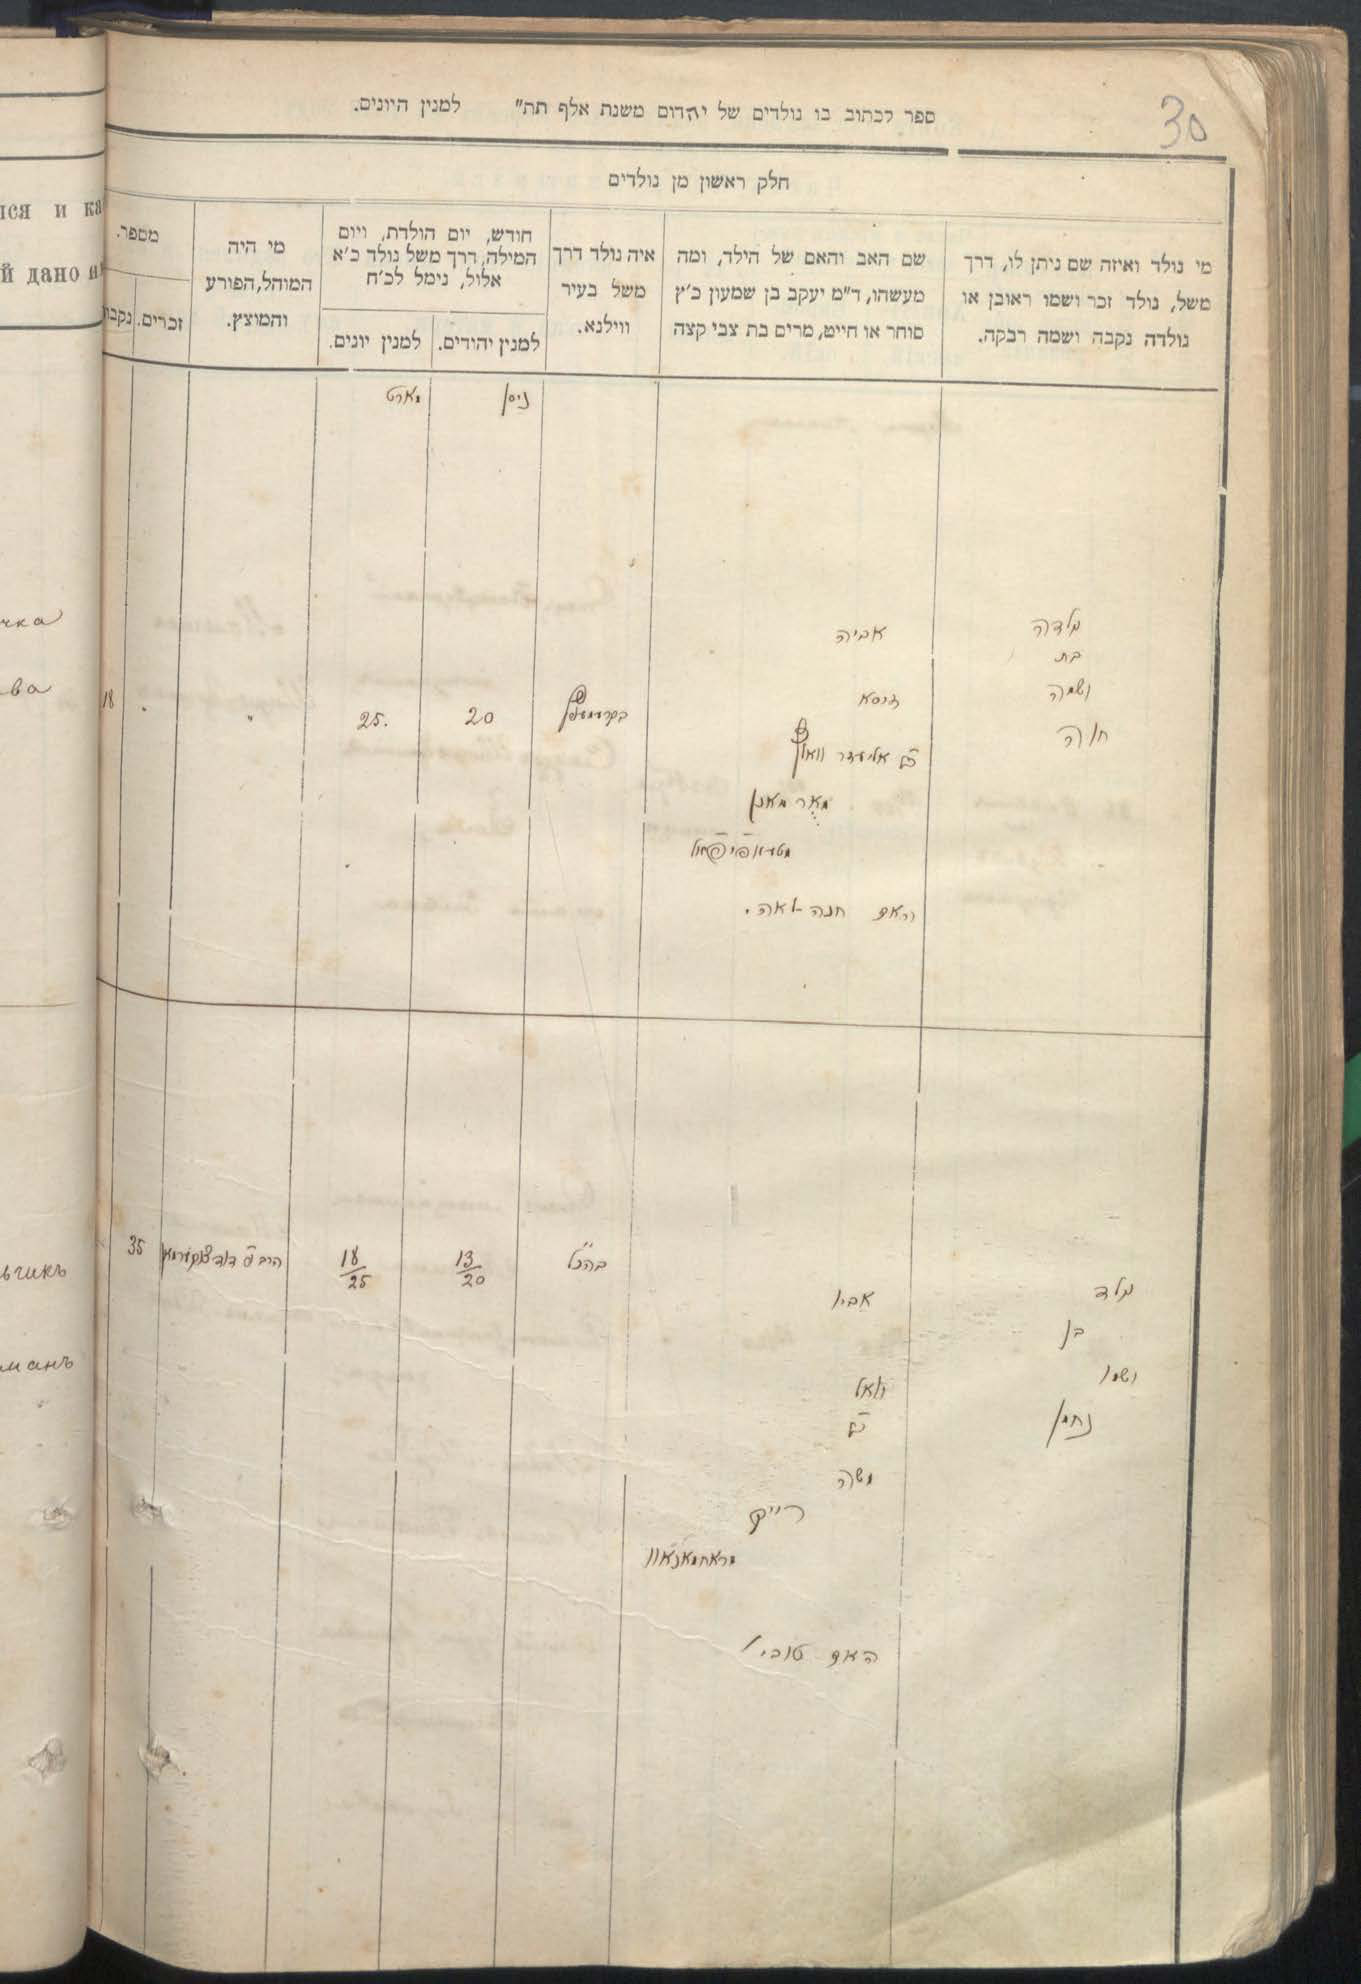 30
ספר לכתוב בו נולדים של יהדום משנת אלף תת" למנין היונים.
חלק ראשון מן נולדים
מי נולד ואיזה שם ניתן לו, דרך
משל, נולד זכר ושמו ראובן או
נולדה נקבה ושמה רבקה.
שם האב והאם של הילד, ומה
מעשהו, ד"מ יעקב בן שמעון כ'ץ
סוחר או חייט, מרים בת צבי קצה
איה נולד דרך
משל בעיר
ווילנא.
חודש, יום הולדת, ויום
המילה, דרך משל נולד כ'א
אלול, נימל לכ'ח
למנין יהודים.
למנין יונים.
מי היה
המוהל, הפורע
והמוצץ.
מספר.
זכרים.
נקבו
лся и ка
й дано и
ניסן
מארט
נולדה
בת
ושמה
חוה
אביה
אליעזר
מאן
האם חנה לאה.
20
25.
"
"
18
чка
ва
נולד
בן
ושמו
נחמן
אביו
יואל
משה
האם
13
20
18
25
הרב דוד
35
ьчикъ
манъ